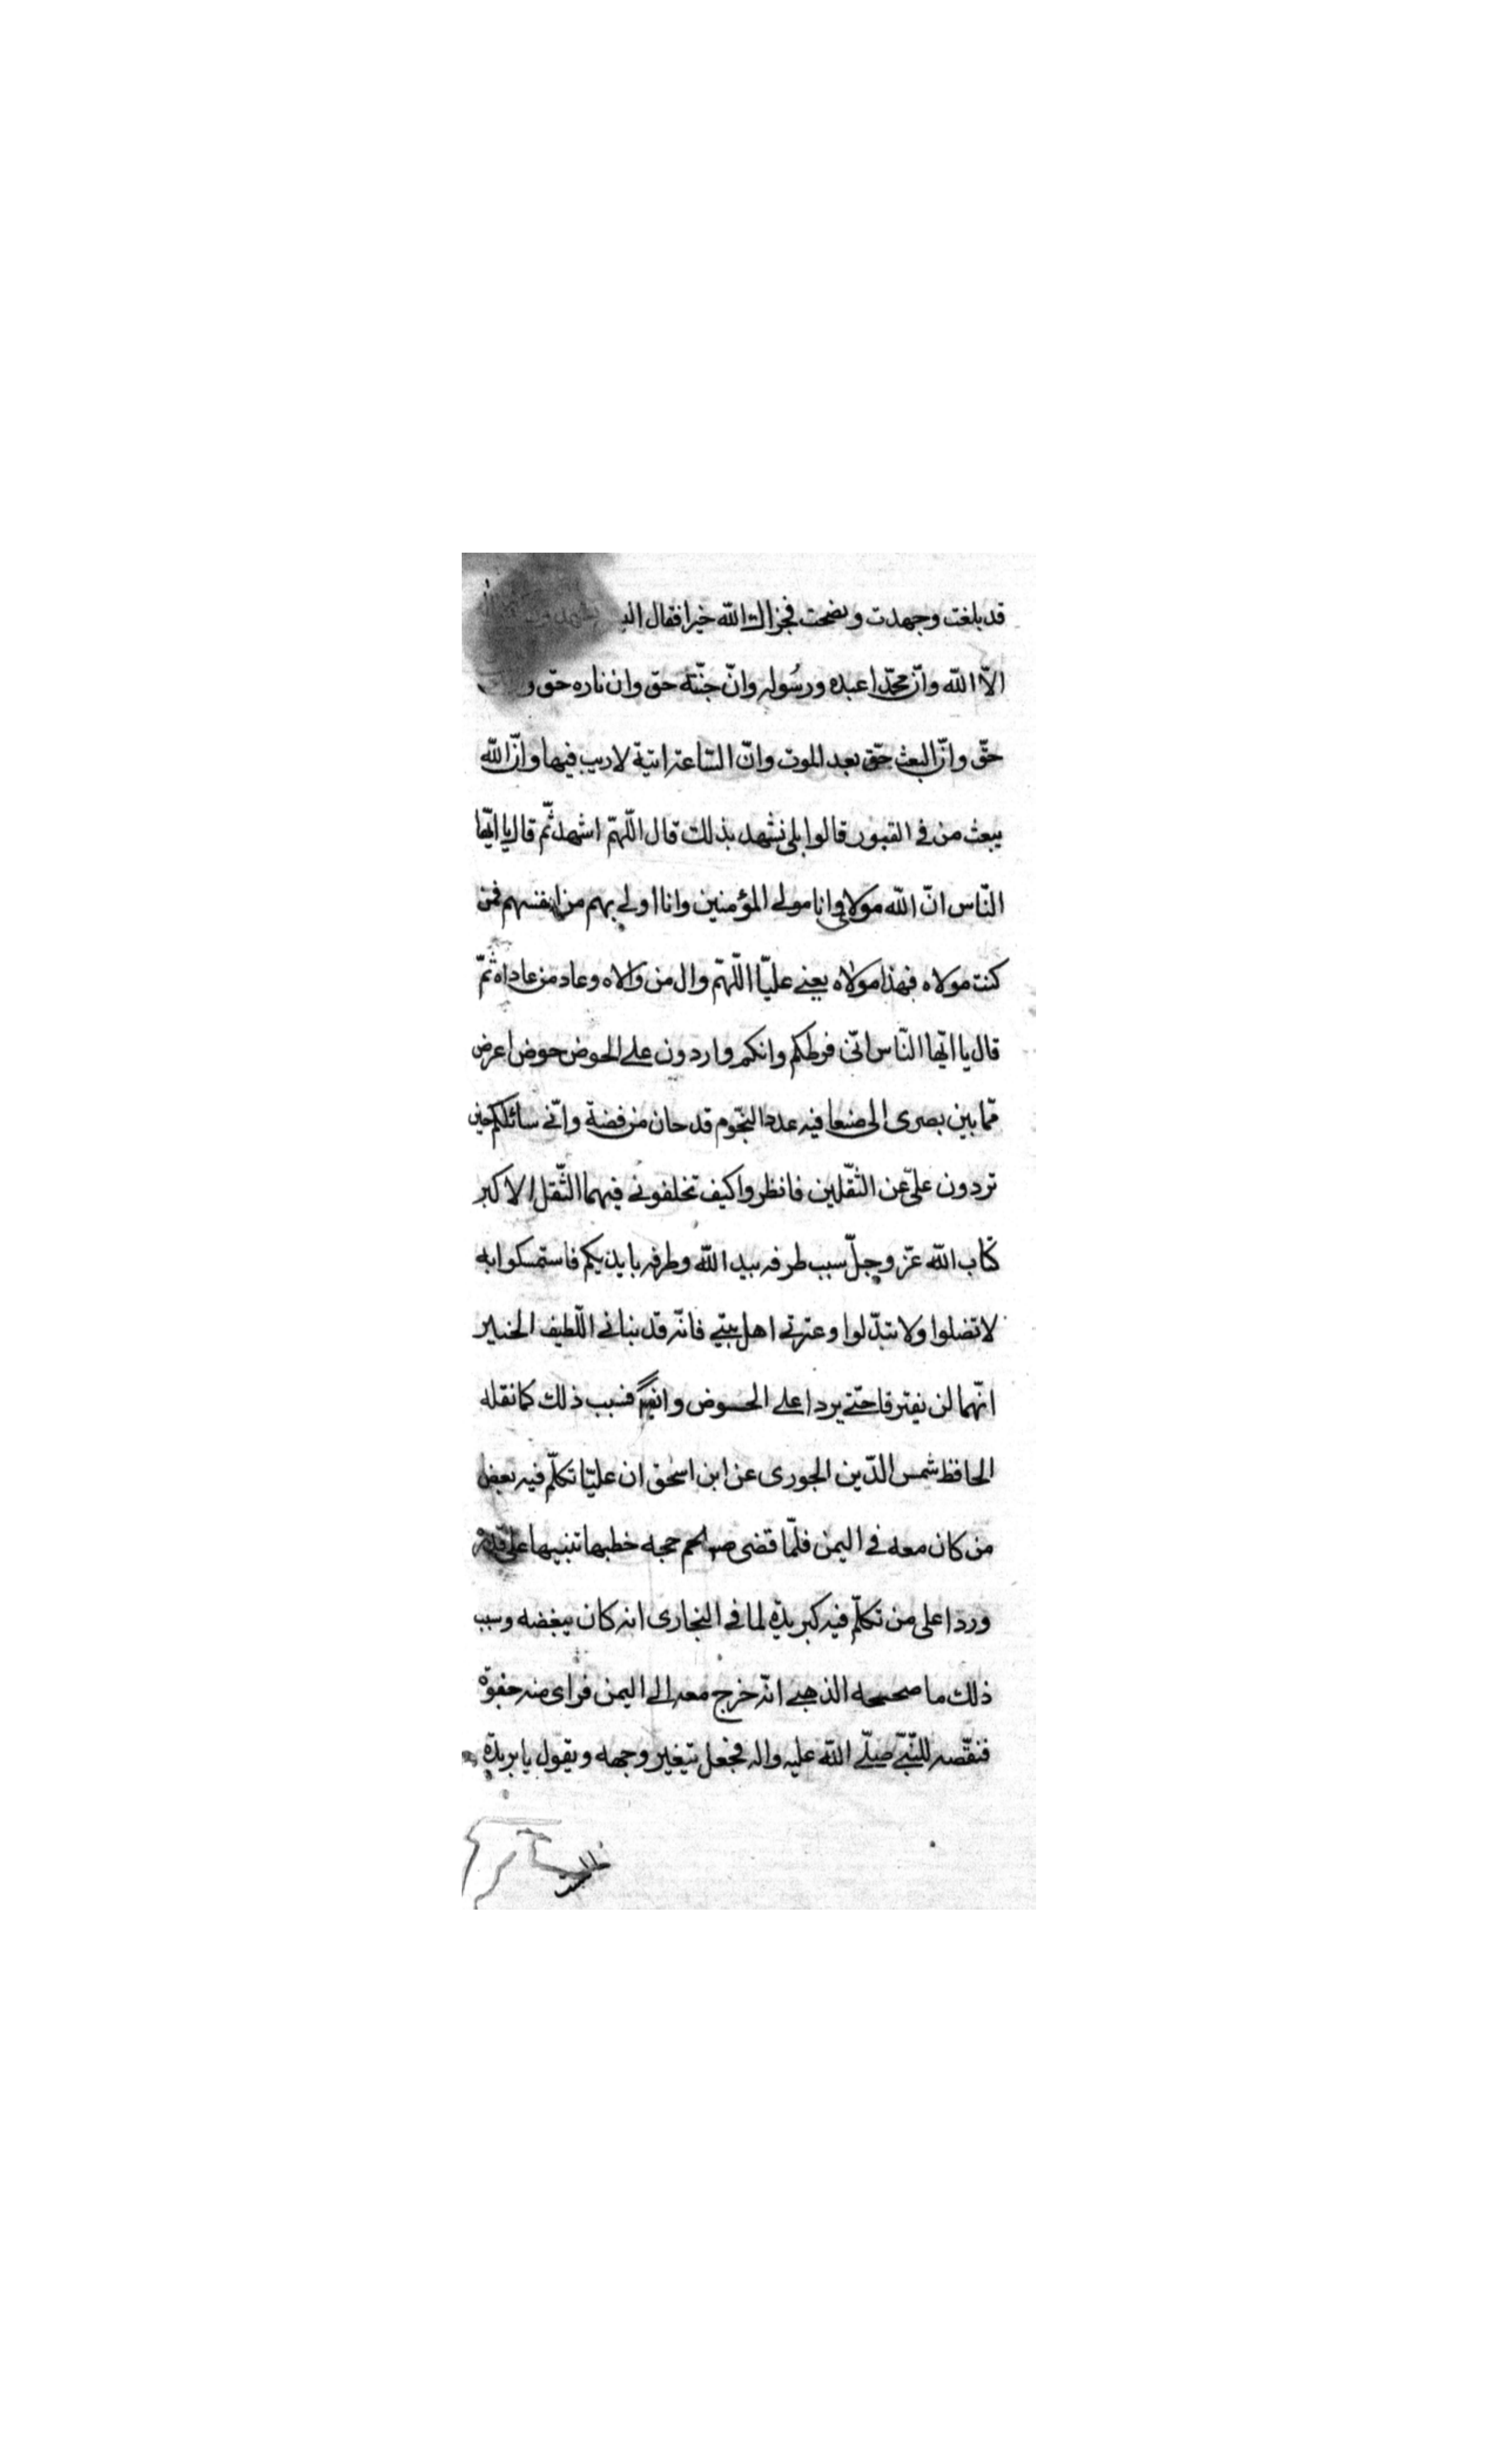 قد بلغت وجهدت ونصحت فجزاك الله خيرا فقال
الّا الله وانّ محمّدا عبده ورسُوله وانّ جنّته حق وان ناره حق و
حقّ وانّ البعث حقّ بعد الموت وانّ السّاعة اتية لا ريب فيها وانّ الله
يبعث من فى القبور قالوا بلى نشهد بذلك قال اللّهمّ اشهد ثّم قال يا ايّها
النّاس انّ الله مولاى وانا مولى المؤمنين وانا اولى بهم من انفسهم فمن
كنت مولاه فهذا مولاه يعنى عليّا اللّهمّ وال من والاه وعاد من عاداه ثمّ
قال يا ايّها النّاس انّى فرطكم وانكم واردون على الحوض حوض اعرض
ممّا بين بصرى الى صنعا فيه عدد النجّوم قدحان من فضة وانّى سائلكم حين
تردون علىّ عن الثّقلين فانظروا كيف تخلفونى فيهما الثّقل الاكبر
كتاب الله عزّ وجلّ سبب طرفه بيد الله وطرفه بايديكم فاستمسكوا به
لا تضلوا ولا تبدّلوا وعترتى اهل بيتى فانّه قد نبانى اللّطيف الخبير
انّهما لن يفترقا حتّى يردا على الحوض وايضا فسبب ذلك كما نقله
الحافظ شمس الدّين الجورى عن ابن اسحق ان عليّا تكلّم فيه بعض
من كان معه فى اليمن فلمّا قضى صلعم حجه خطبها تنبيها على قدره
وردا على من تكلّم فيه كبريدة لما فى البخارى انه كان يبغضه وسبب
ذلك ما صححه الذهبى انّه خرج معه الى اليمن فراى منه جفوة
فنقّصه للنّبىّ صلّى الله عليه واله فجعل يتغير وجهه ويقول يا بريدة